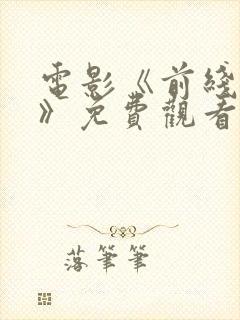 電影《前綫
》免費觀看
落筆筆